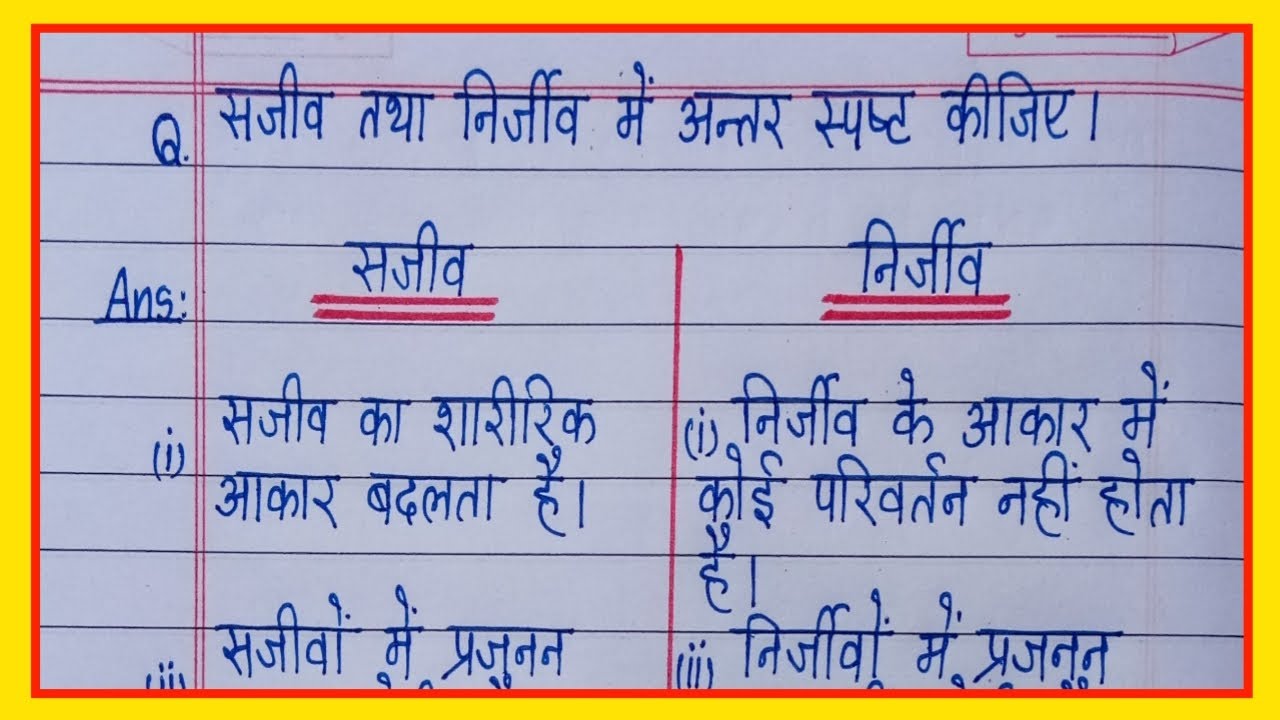 Q. सजीव तथा निर्जीव में अन्तर स्पष्ट कीजिए।
Ans: सजीव
निर्जीव
(i) सजीव का शारीरिक
आकार बदलता है।
(i) निर्जीव के आकार में
कोई परिवर्तन नहीं होता
है।
(ii) सजीवों में प्रजनन
(ii) निर्जीवों में प्रजनन